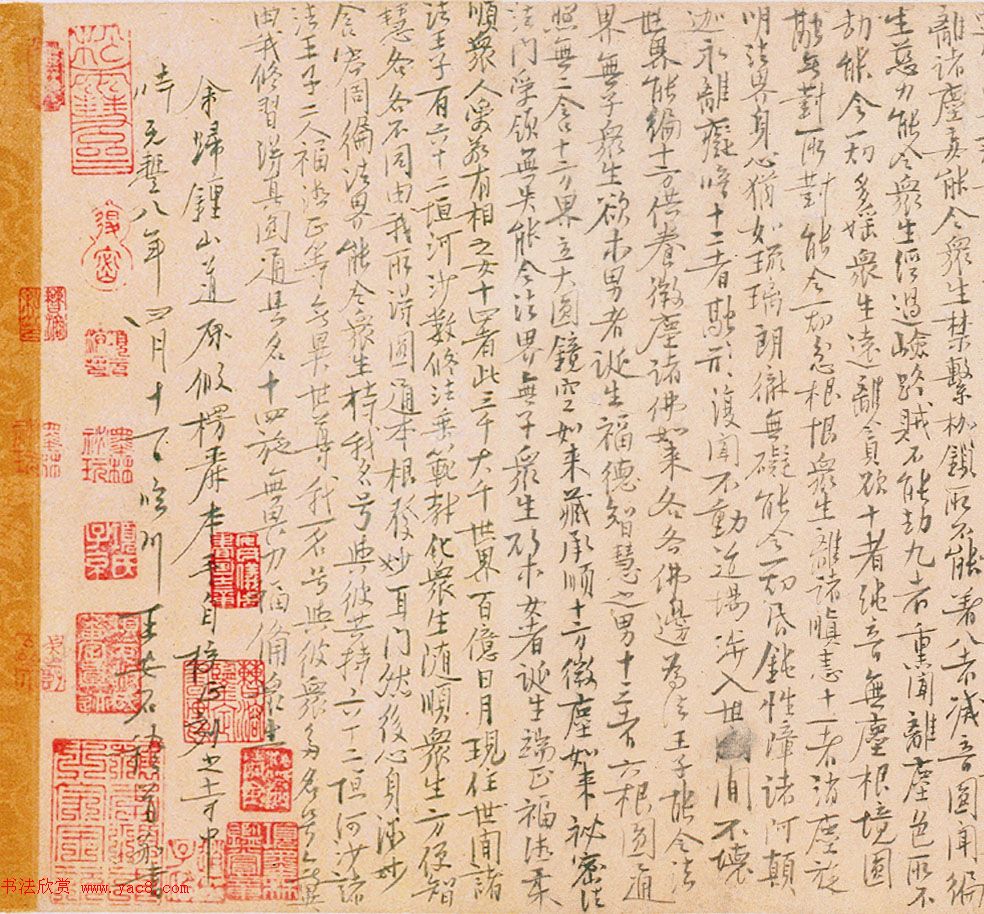 離諸塵妄能令眾生禁繫枷鎖所不能著八者滅音圓聞徧
生慈力能令眾生經過嶮路賊不能劫九者熏聞離塵色所不
劫能令一切多婬眾生遠離貪欲十者純音無塵根境圓
融無對所對能令一切忿根恨眾生離諸瞋恚十一者消塵旋
明法界身心猶如琉璃朗徹無礙能令一切昏鈍性障諸阿顛
迦永離癡暗十二者融形復聞不動道場涉入世間不壞
世界能徧十方供養微塵諸佛如來各各佛邊為法王子能令法
界無子眾生欲求男者誕生福德智慧之男十三者六根圓通
照無二含十方界立大圓鏡空如來藏承順十方微塵如來祕密法
法門受領無失能令法界無子眾生欲求女者誕生端正福德柔
順眾人愛敬有相之女十四者此三千大千世界百億日月現住世間諸
法王子有六十二恒河沙數修法垂範教化眾生隨順眾生方便智
慧各各不同由我所得圓通本根發妙耳門然後心身微妙
含容周徧法界能令眾生持我名号與彼共持六十二恒河沙諸
法王子二人福德正等無異世尊我一名号與彼眾多名号無異
由我修習得真圓通是名十四施無畏力福備眾生
余歸鍾山道原假楞嚴本手自校正刻之寺中
時元豐八年四月十一日臨川王安石稽首敬書
項氏子京
墨林祕玩
书法欣赏 www.yac8.com